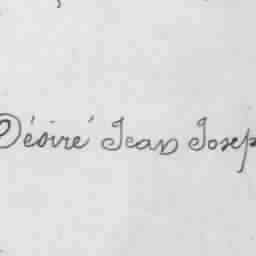 Désiré Jean Josep